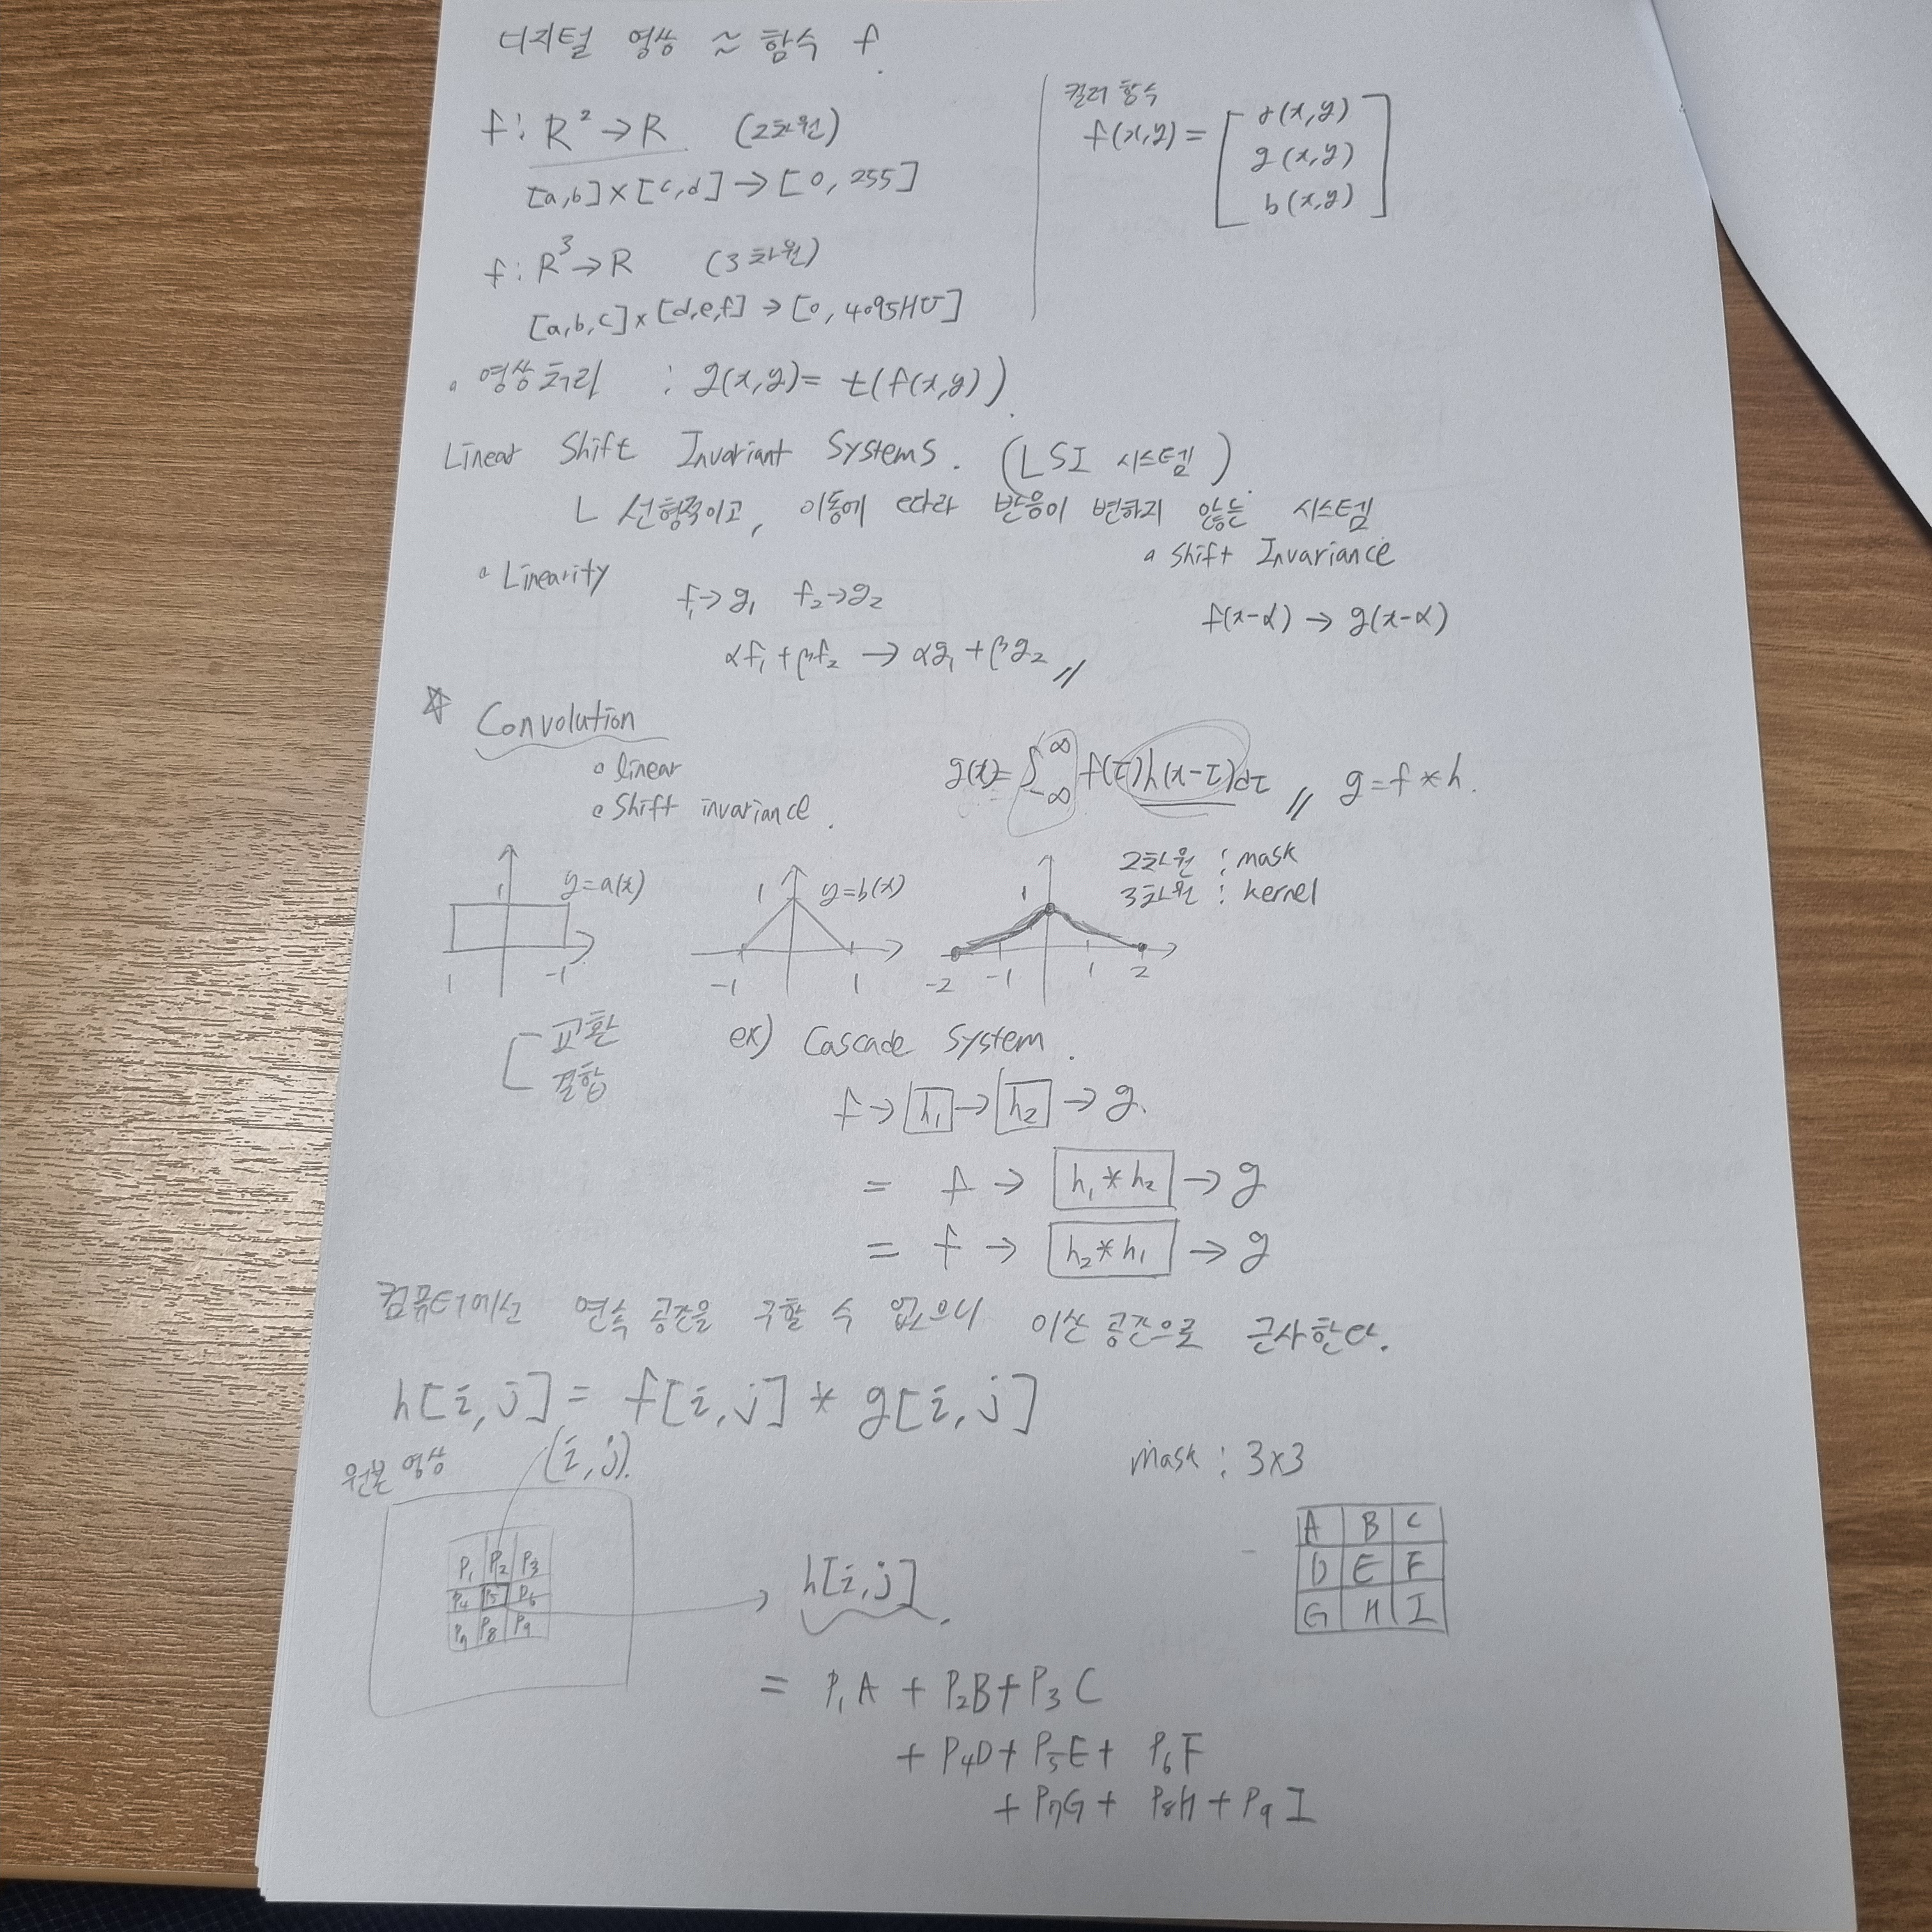 디지털 영상 ≈ 함수 f.
f: R² → R (2차원)
[a,b]×[c,d] → [0, 255]
f: R³ → R (3차원)
[a,b,c]×[d,e,f] → [0, 4095HU]
컬러 함수
f(x,y) = [ r(x,y)
g(x,y)
b(x,y) ]
영상처리 : g(x,y) = t(f(x,y)).
Linear Shift Invariant Systems. (LSI 시스템).
ㄴ 선형적이고, 이동에 따라 반응이 변하지 않는 시스템
Linearity
f₁→g₁ f₂→g₂
αf₁+βf₂ → αg₁+βg₂ //
Shift Invariance
f(x-α) → g(x-α)
☆ Convolution
linear
Shift invariance.
g(x)=∫_{-∞}^{∞} f(τ)h(x-τ)dτ // g=f*h.
2차원 : mask
3차원 : kernel
1 y=a(x)
1 -1
1 y=b(x)
-1 1
1
-2 -1 1 2
[ 교환
결합
ex) Cascade System.
f → h₁ → h₂ → g.
= f → h₁*h₂ → g
= f → h₂*h₁ → g
컴퓨터에선 연속 공간을 구할 수 없으니 이산 공간으로 근사한다.
h[i,j] = f[i,j] * g[i,j]
원본 영상 (i,j).
P₁ P₂ P₃
P₄ P₅ P₆
P₇ P₈ P₉
h[i,j].
mask : 3×3
A B C
D E F
G H I
= P₁A + P₂B + P₃C
+ P₄D + P₅E + P₆F
+ P₇G + P₈H + P₉I